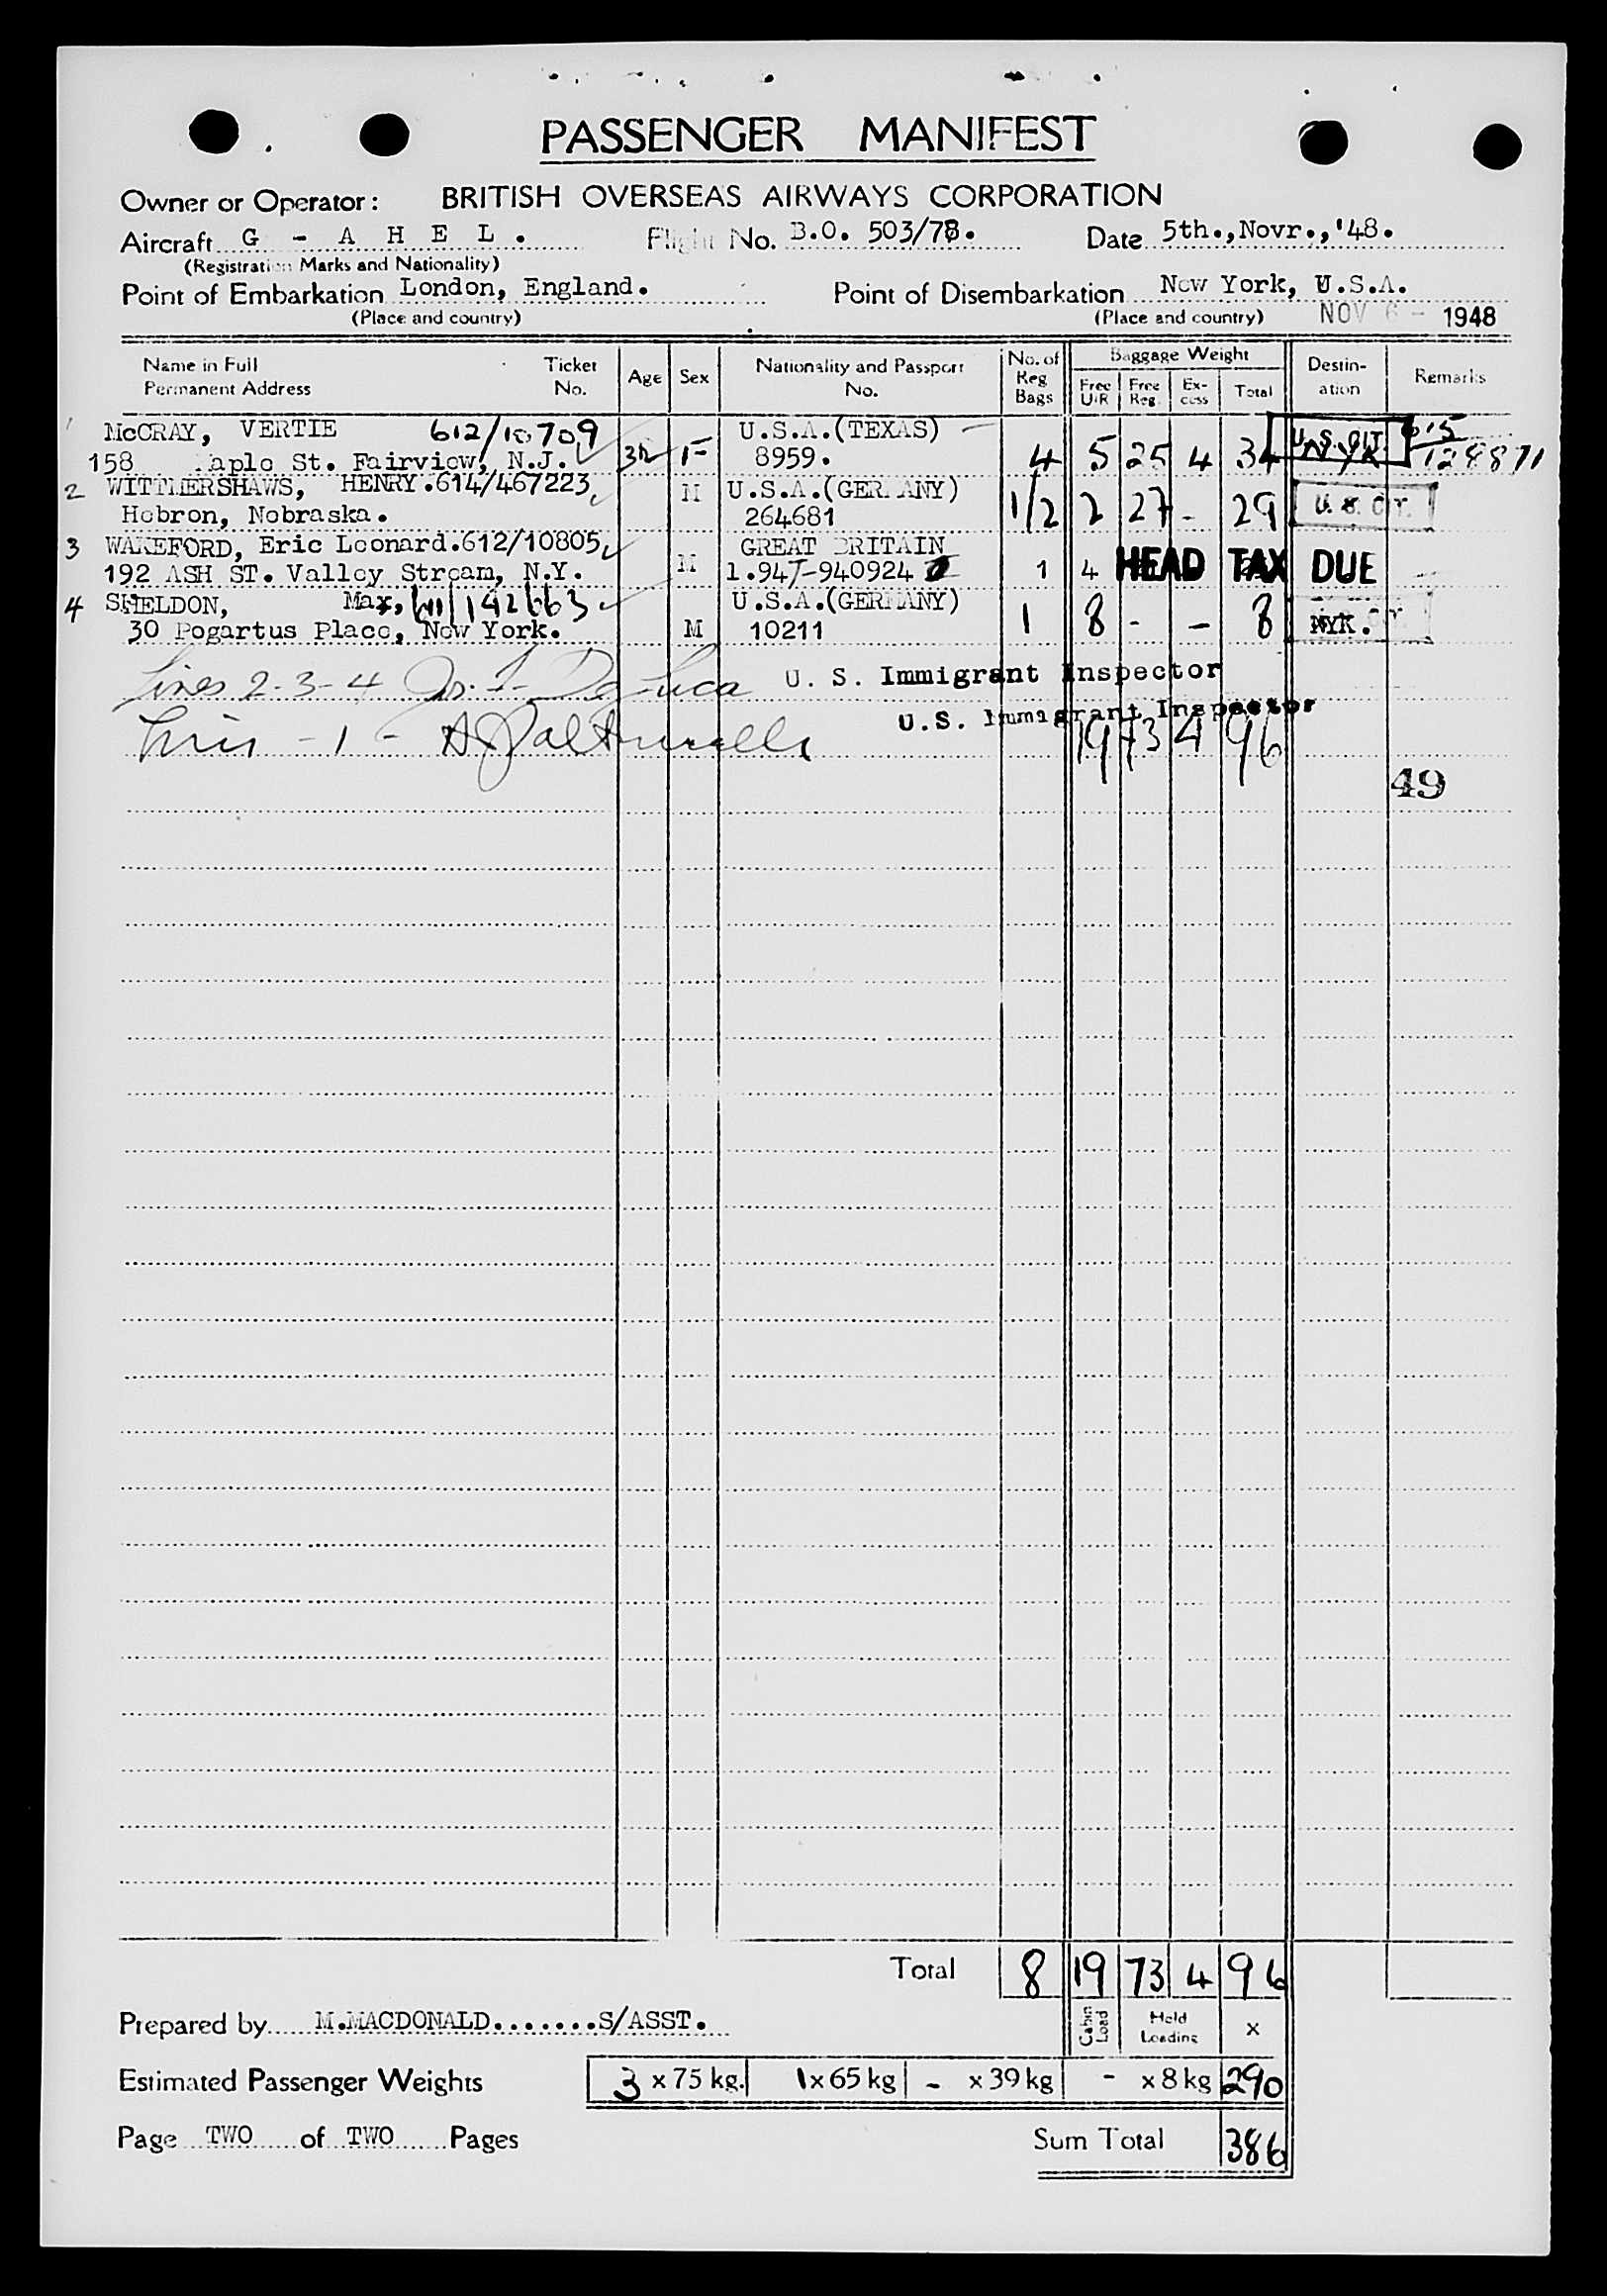 PASSENGER MANIFEST
Owner or Operator: BRITISH OVERSEAS AIRWAYS CORPORATION
Aircraft G - A H E L. Flight No. B.O. 503/78. Date 5th.,Novr.,'48.
(Registration Marks and Nationality)
Point of Embarkation London, England. Point of Disembarkation New York, U.S.A.
(Place and country) (Place and country) NOV 6 - 1948
Name in Full Ticket Age Sex Nationality and Passport No. of Baggage Weight Destin- Remarks
Permanent Address No. No. Reg Bags Free U/R Free Reg. Ex- cess Total ation
1 McCRAY, VERTIE 612/10709 U.S.A.(TEXAS)
158 Maple St. Fairview, N.J. F 8959. 4 5 25 4 34 U.S. CIT. 128871
2 WITTMERSHAWS, HENRY.614/467223 M U.S.A.(GERMANY)
Hebron, Nebraska. 264681 1/2 2 27 - 29
3 WAKEFORD, Eric Leonard.612/10805 M GREAT BRITAIN
192 ASH ST. Valley Stream, N.Y. 1.947-940924 1 4 HEAD TAX DUE
4 SHELDON, Max, U.S.A.(GERMANY)
30 Pogartus Place, New York. M 10211 1 8 - - 8 NYK.
Lines 2-3-4 U. S. Immigrant Inspector
Line - 1 - U.S. Immigrant Inspector
19 73 4 96
49
Total 8 19 73 4 96
Prepared by M.MACDONALD.......S/ASST. Cabin Load Hold Loading x
Estimated Passenger Weights 3 x 75 kg. 1 x 65 kg - x 39 kg - x 8 kg 290
Page TWO of TWO Pages Sum Total 386